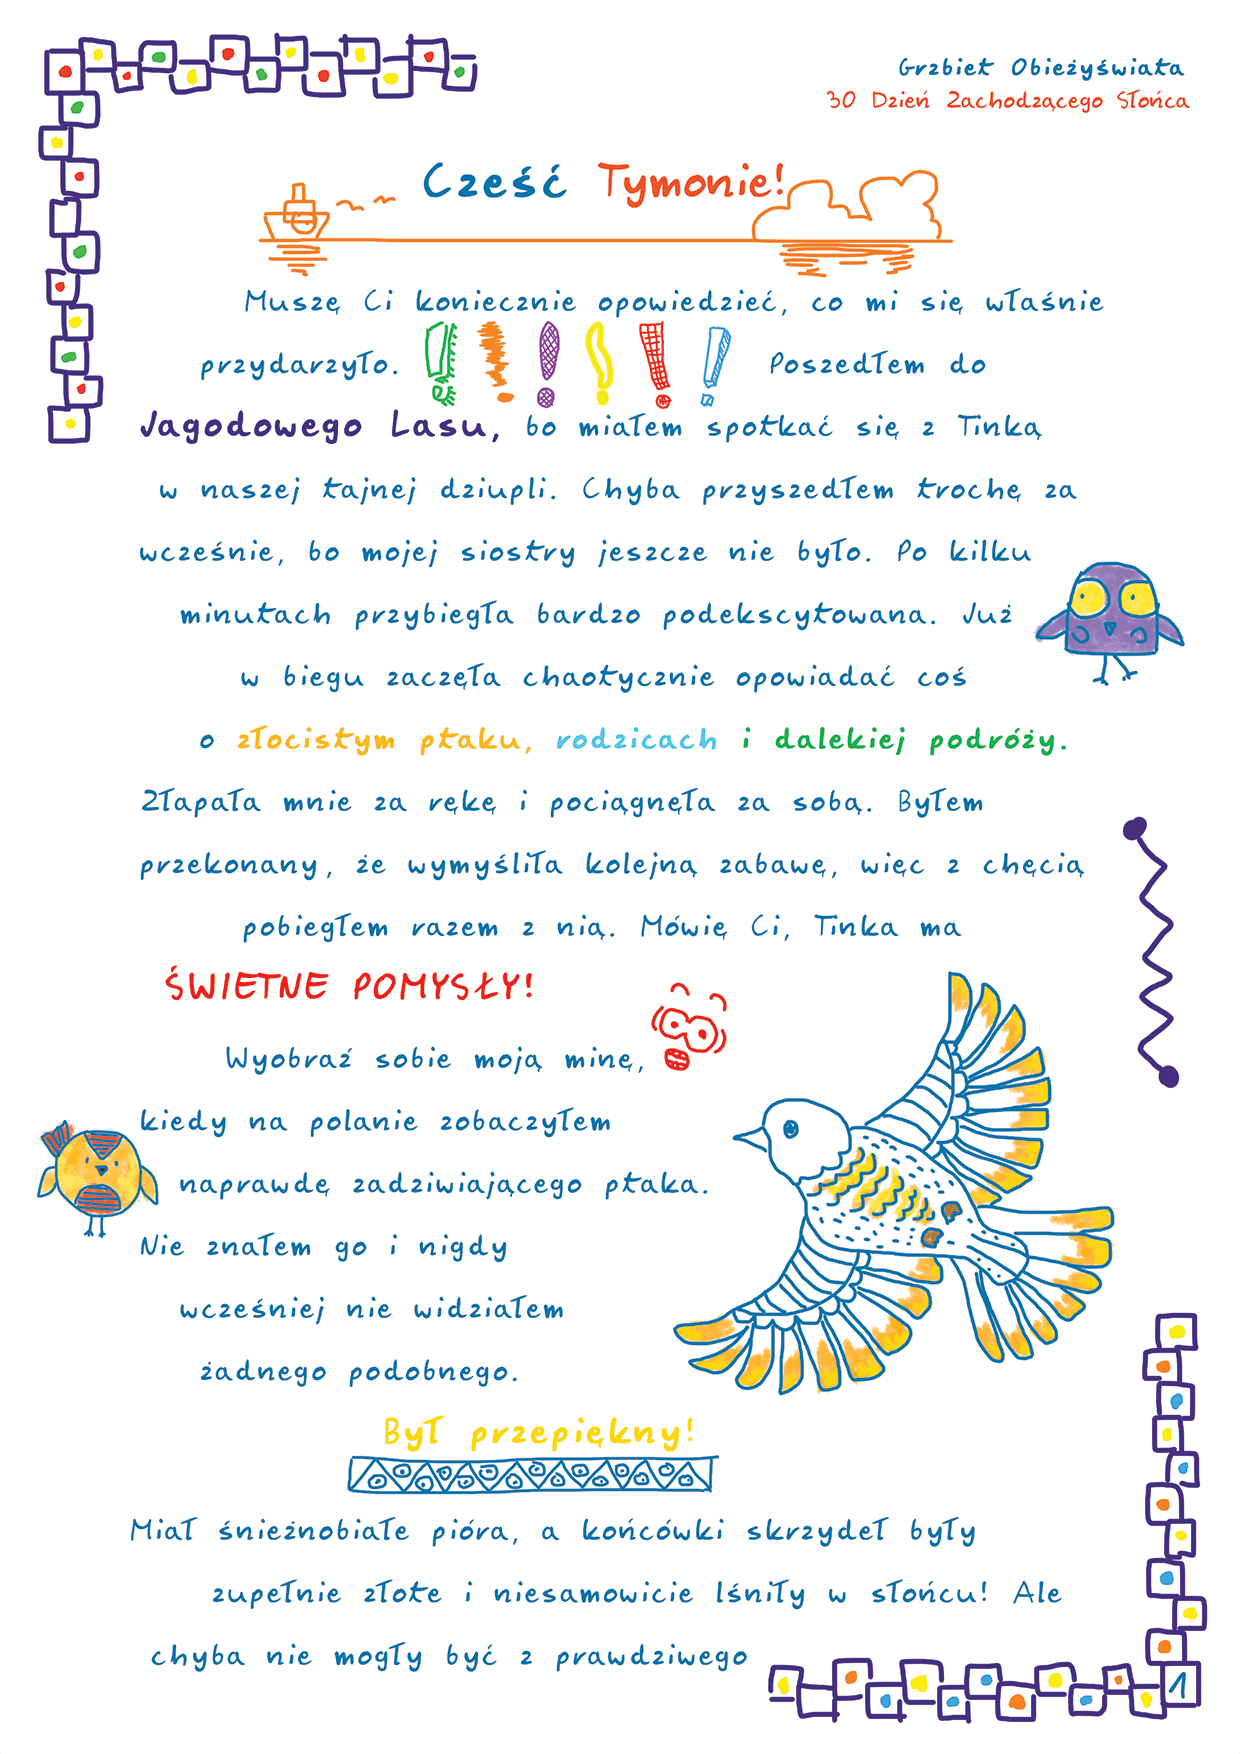 Grzbiet Obieżyświata
30 Dzień Zachodzącego Słońca
Cześć Tymonie!
Muszę Ci koniecznie opowiedzieć, co mi się właśnie
przydarzyło. !!!!!! Poszedłem do
Jagodowego Lasu, bo miałem spotkać się z Tinką
w naszej tajnej dziupli. Chyba przyszedłem trochę za
wcześnie, bo mojej siostry jeszcze nie było. Po kilku
minutach przybiegła bardzo podekscytowana. Już
w biegu zaczęła chaotycznie opowiadać coś
o złocistym ptaku, rodzicach i dalekiej podróży.
Złapała mnie za rękę i pociągnęła za sobą. Byłem
przekonany, że wymyśliła kolejną zabawę, więc z chęcią
pobiegłem razem z nią. Mówię Ci, Tinka ma
ŚWIETNE POMYSŁY!
Wyobraź sobie moją minę,
kiedy na polanie zobaczyłem
naprawdę zadziwiającego ptaka.
Nie znałem go i nigdy
wcześniej nie widziałem
żadnego podobnego.
Był przepiękny!
Miał śnieżnobiałe pióra, a końcówki skrzydeł były
zupełnie złote i niesamowicie lśniły w słońcu! Ale
chyba nie mogły być z prawdziwego
1